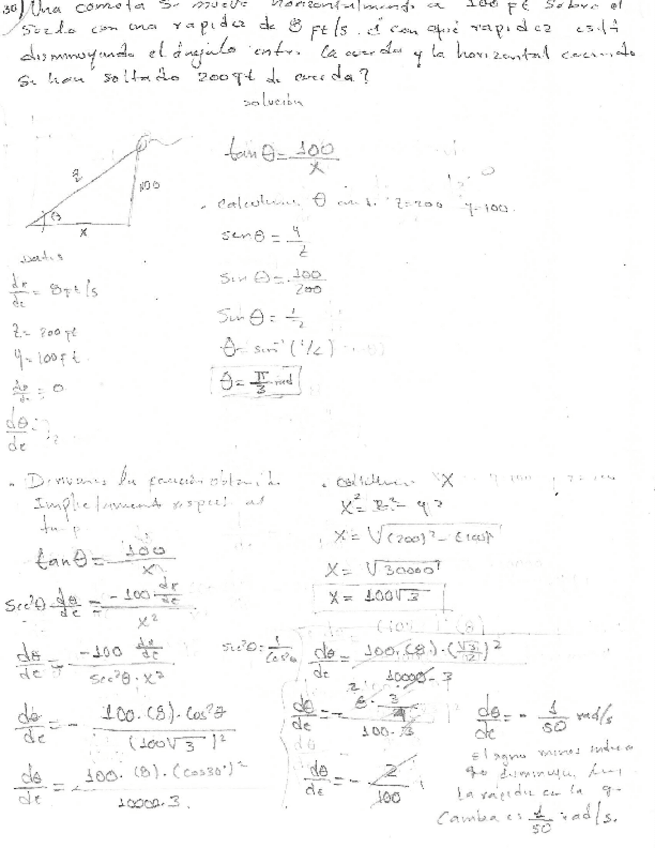 30) Una cometa se mueve horizontalmente a 100 pt sobre el
suelo con una rapidez de 8 pt/s. ¿ con qué rapidez está
disminuyendo el ángulo entre la cuerda y la horizontal cuando
se han soltado 200 pt de cuerda?
solución
z
100
θ
x
tan θ = 100/x
. calculamos θ z=200 y=100.
sen θ = y/z
Sin θ = 100/200
Sin θ = 1/2
θ = sin⁻¹ (1/2)
θ = π/3 rad
datos
dx/dt = 8 pt/s
z = 200 pt
y = 100 pt
= 0
dθ/dt = ?
. Derivamos la
implicitamente
tan θ = 100/x
Sec²θ dθ/dt = -100 dx/dt / x²
dθ/dt = -100 dx/dt / Sec²θ · x²
sec²θ = 1/cos²θ
dθ/dt = - 100 · (8) · Cos²θ / (100√3)²
dθ/dt = - 100 · (8) · (cos30°)² / 10000 · 3 .
. X
x² = z² - y²
x = √(200)² - (100)²
x = √30000
x = 100√3
dθ/dt = 100 · (8) · (√3/2)² / 10000 · 3
dθ/dt = - 8 · 3/4 / 100 · 3
dθ/dt = - 2/100
dθ/dt = - 1/50 rad/s
El signo menos indica
La rapidez en la q.
Cambia es 1/50 rad/s.